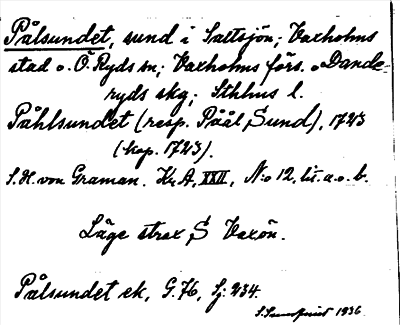 Pålsundet, sund i Saltsjön; Vaxholms
stad o. Ö. Ryds sn; Vaxholms förs. o Dande-
ryds skg; Sthlms l.
Påhlsundet (resp. Påål Sund), 1723
(kop. 1723).
S. H. von Graman. Kr. A, XXII, N:o 12, lit. a. o. b.
Läge strax S Vaxön.
Pålsundet ek, G. 76, Sj. 234.
1936.